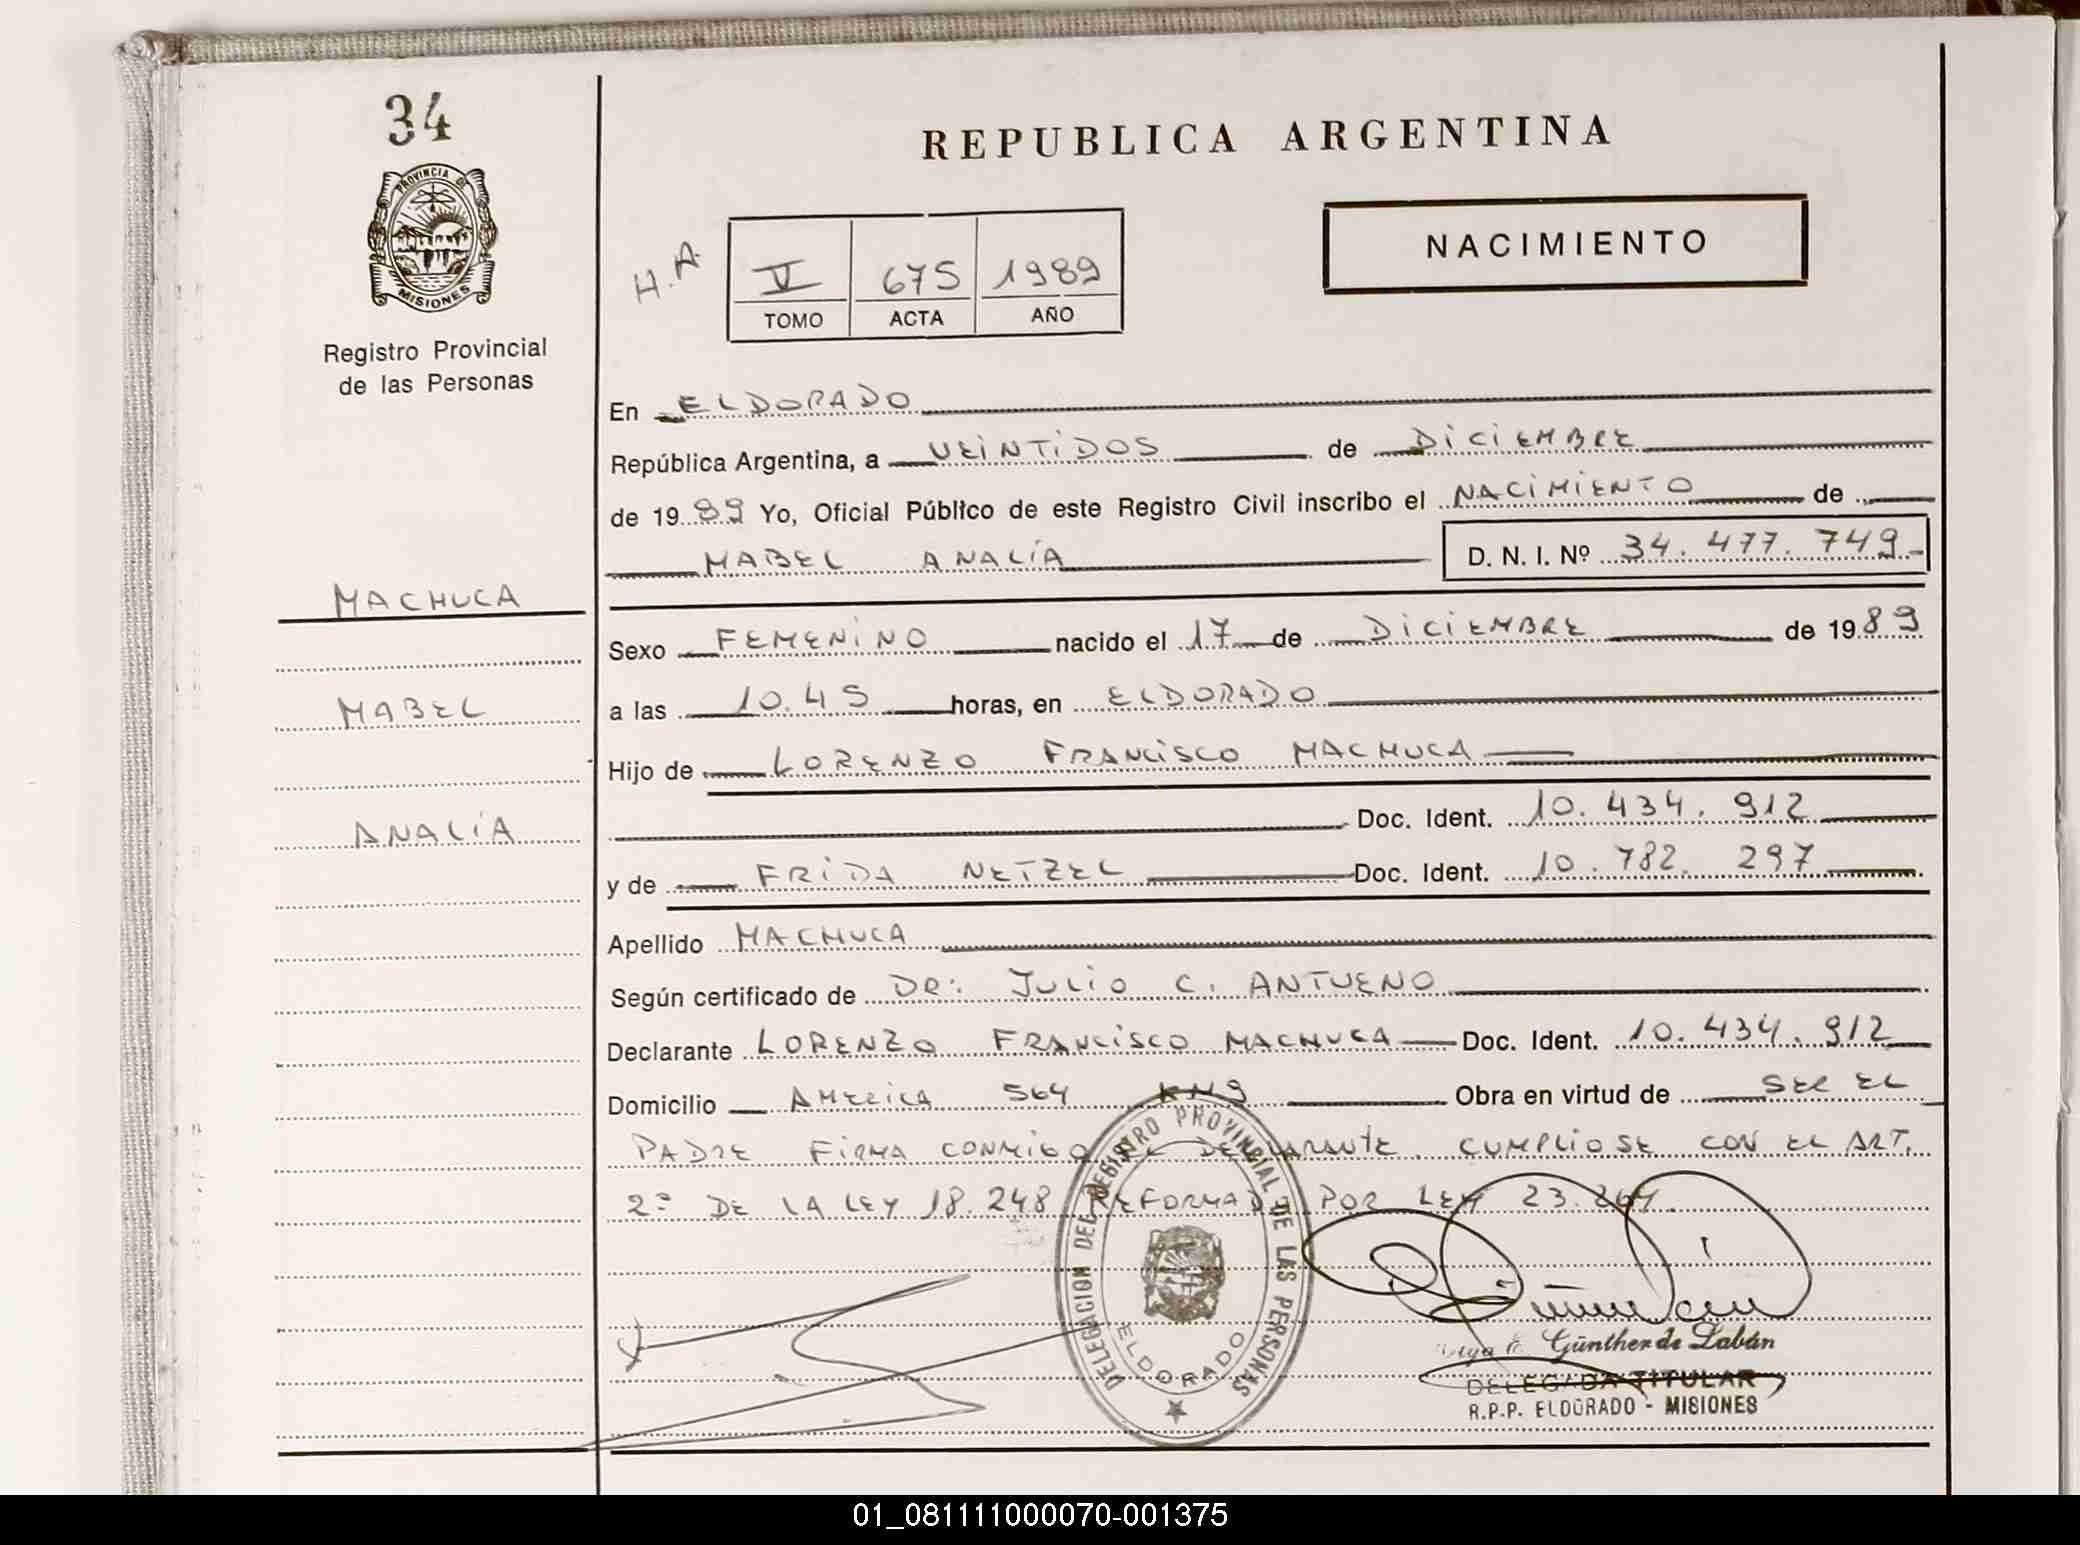 34
REPUBLICA ARGENTINA
PROVINCIA DE
MISIONES
Registro Provincial
de las Personas
H.A.
V 675 1989
TOMO ACTA AÑO
NACIMIENTO
En ELDORADO
República Argentina, a VEINTIDOS de DICIEMBRE
de 1989 Yo, Oficial Público de este Registro Civil inscribo el NACIMIENTO de
MABEL ANALÍA D. N. I. Nº 34.477.749
MACHUCA
MABEL
ANALÍA
Sexo FEMENINO nacido el 17 de DICIEMBRE de 1989
a las 10.45 horas, en ELDORADO
Hijo de LORENZO FRANCISCO MACHUCA
Doc. Ident. 10.434.912
y de FRIDA NETZEL Doc. Ident. 10.782.297
Apellido MACHUCA
Según certificado de DR: JULIO C. ANTUENO
Declarante LORENZO FRANCISCO MACHUCA Doc. Ident. 10.434.912
Domicilio AMERICA 564 KM9 Obra en virtud de SER EL
PADRE FIRMA CONMIGO EL DECLARANTE. CUMPLIOSE CON EL ART.
2º DE LA LEY 18.248 REFORMADA POR LEY 23.264.
DELEGACION DEL REGISTRO PROVINCIAL DE LAS PERSONAS
ELDORADO
Günther de Labán
DELEGADA TITULAR
R.P.P. ELDORADO - MISIONES
01_081111000070-001375